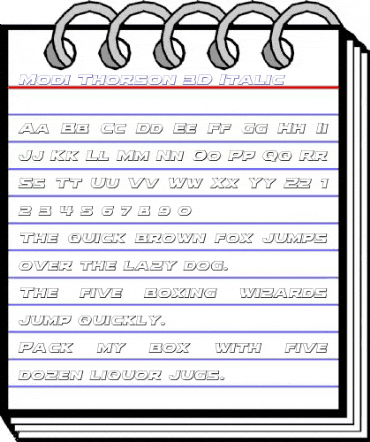 Modi Thorson 3D Italic
Aa Bb Cc Dd Ee Ff Gg Hh Ii
Jj Kk Ll Mm Nn Oo Pp Qq Rr
Ss Tt Uu Vv Ww Xx Yy Zz 1
2 3 4 5 6 7 8 9 0
The quick brown fox jumps
over the lazy dog.
The five boxing wizards
jump quickly.
Pack my box with five
dozen liquor jugs.